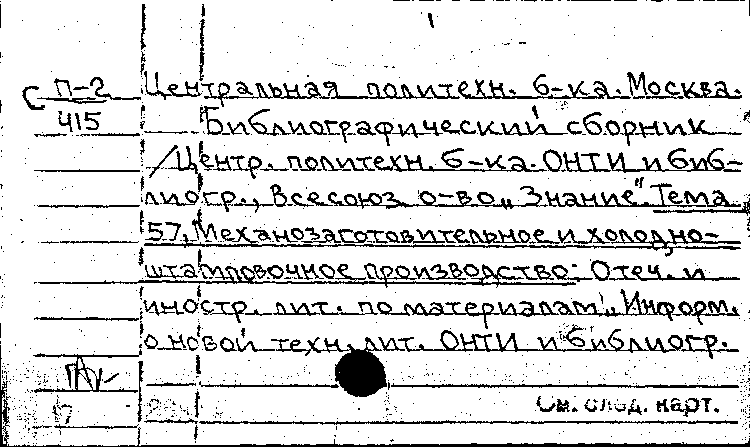 С П-2 Центральная политехн. б-ка. Москва.
415 Библиографический сборник
/Центр. политехн. б-ка. ОНТИ и биб-
лиогр., Всесоюз. о-во „Знание". Тема
57, Механозаготовительное и холодно-
штамповочное производство: Отеч. и
иностр. лит. по материалам „Информ.
о новой техн. лит. ОНТИ и библиогр.
См. след. карт.